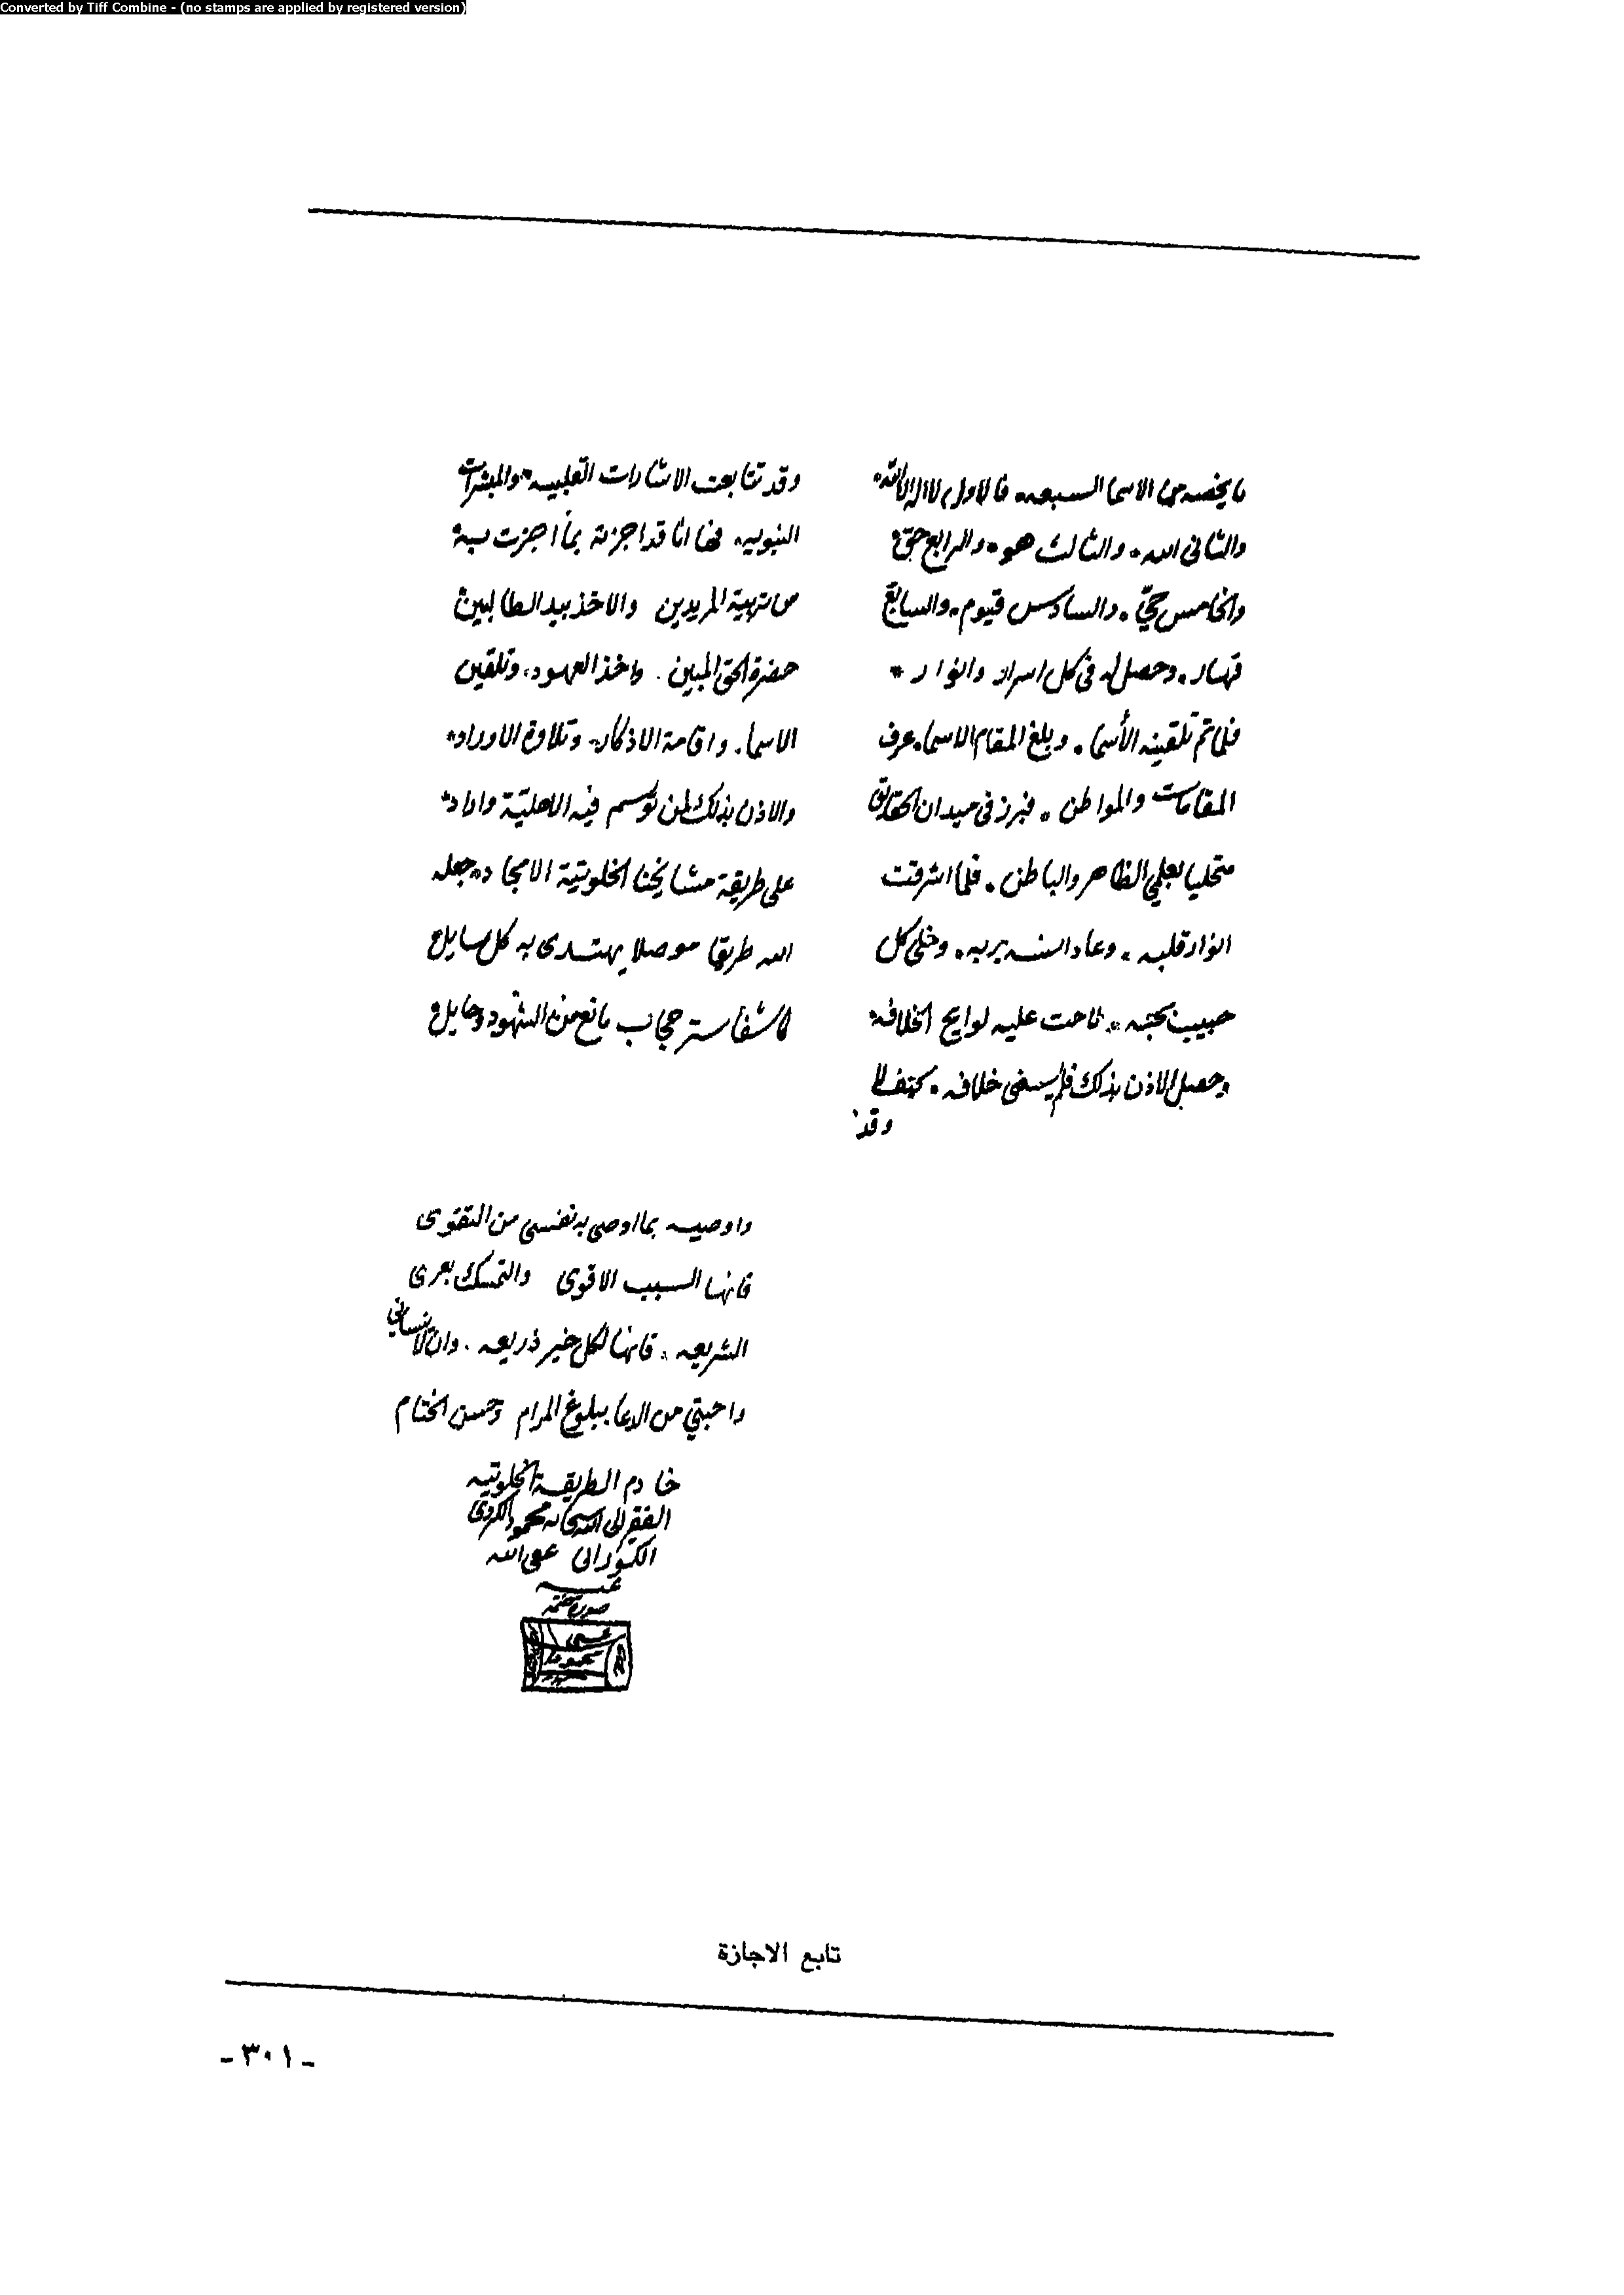 Converted by Tiff Combine - (no stamps are applied by registered version)
ما يخصه من الاسما السبعه فالاول لا اله الا الله
والثانى الله والثالث هو والرابع حق
والخامس حيّ والسادس قيوم والسابع
قهار وحصل له فى كل اسرار وانوار *
فلما تم تلقينه الأسما وبلغ المقام الاسما عرف
المقامات والمواطن فبرز فى ميدان الحقائق
متحليا بعلمي الظاهر والباطن فلما اشرقت
انوار قلبه وعاد انسه بربه وخلى كل
حبيب لاحت عليه لوايح الخلافه
وحصل الاذن بذلك فلم خلافه
وقد
وقد تتابعت الاشارات القلبيه والمبشرات
النبويه فها انا قد اجزته بما اجزت به
من تربية المريدين والاخذ بيد الطالبين
حضرة الحق المبين واخذ العهود وتلقين
الاسما واقامة الاذكار وتلاوة الاوراد
والاذن بذلك لمن توسم فيه الاهليّة واراد
على طريقة مشايخنا الخلوتية الامجاد جعله
الله طريقا موصلا يهتدى به كل سايل
كاشفا ستر حجاب مانع من الشهود وحايل
واوصيه بما اوصى به نفسى من التقوى
فانها السبب الاقوى والتمسك بعرى
الشريعه فانها لكل خير ذريعه وان لا ينساني
واحبتي من الدعا ببلوغ المرام وحسن الختام
خادم الطريقة الخلوتيه
الفقير الى الله سبحانه محمود الكردى
الكورانى عفى الله
عنه
صورة ختمه
تابع الاجازة
- ٣٠١ -